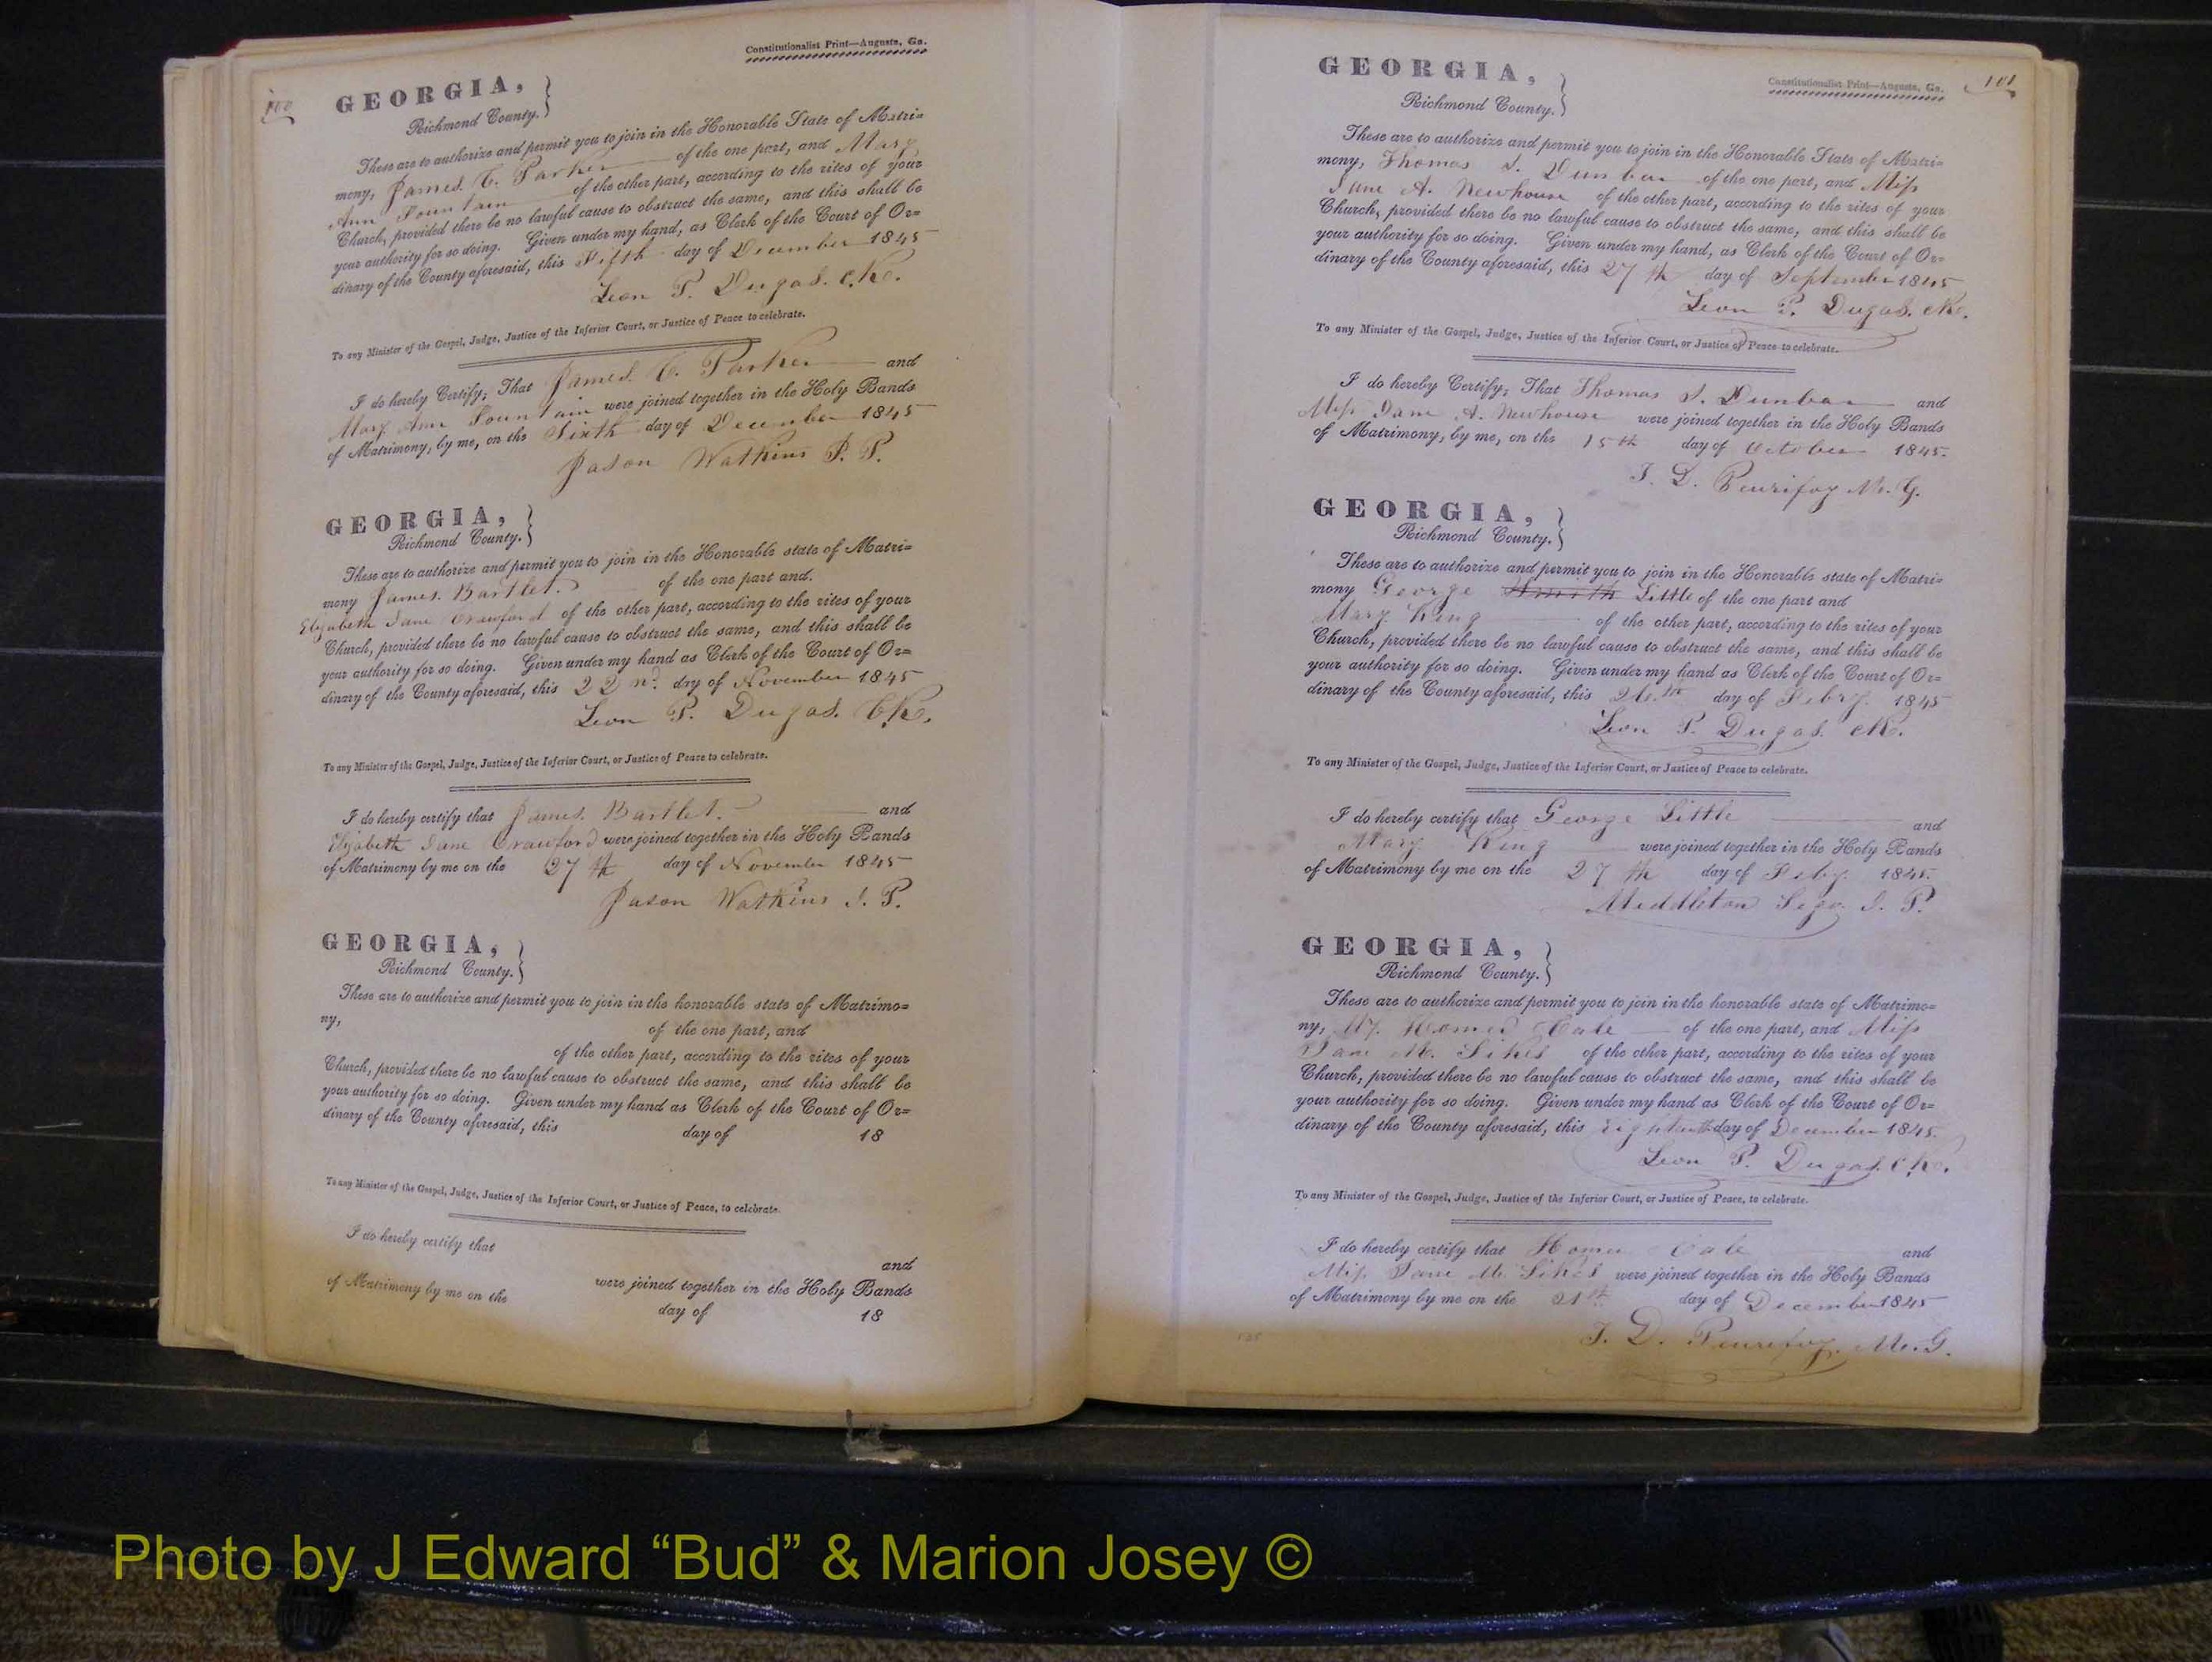 100
Constitutionalist Print—Augusta, Ga.
GEORGIA,
Richmond County.
These are to authorize and permit you to join in the Honorable State of Matri=
mony, James C. Parker of the one part, and Mary
Ann Fountain of the other part, according to the rites of your
Church, provided there be no lawful cause to obstruct the same, and this shall be
your authority for so doing. Given under my hand, as Clerk of the Court of Or=
dinary of the County aforesaid, this Fifth day of December 1845
Leon P. Dugas. Clk.
To any Minister of the Gospel, Judge, Justice of the Inferior Court, or Justice of Peace to celebrate.
I do hereby Certify, That James C. Parker and
Mary Ann Fountain were joined together in the Holy Bands
of Matrimony, by me, on the Sixth day of December 1845
Jason Watkins J. P.
GEORGIA,
Richmond County.
These are to authorize and permit you to join in the Honorable state of Matri=
mony James. Bartlet. of the one part and.
Elizabeth Jane Crawford of the other part, according to the rites of your
Church, provided there be no lawful cause to obstruct the same, and this shall be
your authority for so doing. Given under my hand as Clerk of the Court of Or=
dinary of the County aforesaid, this 22nd. day of November 1845
Leon P. Dugas. Clk.
To any Minister of the Gospel, Judge, Justice of the Inferior Court, or Justice of Peace to celebrate.
I do hereby certify that James. Bartlet. and
Elizabeth Jane Crawford were joined together in the Holy Bands
of Matrimony by me on the 27th day of November 1845
Jason Watkins J. P.
GEORGIA,
Richmond County.
These are to authorize and permit you to join in the honorable state of Matrimo=
ny, of the one part, and
of the other part, according to the rites of your
Church, provided there be no lawful cause to obstruct the same, and this shall be
your authority for so doing. Given under my hand as Clerk of the Court of Or=
dinary of the County aforesaid, this day of 18
To any Minister of the Gospel, Judge, Justice of the Inferior Court, or Justice of Peace, to celebrate.
I do hereby certify that
and
were joined together in the Holy Bands
of Matrimony by me on the day of 18
101
Constitutionalist Print—Augusta, Ga.
GEORGIA,
Richmond County.
These are to authorize and permit you to join in the Honorable State of Matri=
mony, Thomas J. Dunbar of the one part, and Miss
Jane A. Newhouse of the other part, according to the rites of your
Church, provided there be no lawful cause to obstruct the same, and this shall be
your authority for so doing. Given under my hand, as Clerk of the Court of Or=
dinary of the County aforesaid, this 27th day of September 1845
Leon P. Dugas. Clk.
To any Minister of the Gospel, Judge, Justice of the Inferior Court, or Justice of Peace to celebrate.
I do hereby Certify, That Thomas J. Dunbar and
Miss Jane A. Newhouse were joined together in the Holy Bands
of Matrimony, by me, on the 15th day of October 1845.
T. D. Peurifoy M. G.
GEORGIA,
Richmond County.
These are to authorize and permit you to join in the Honorable state of Matri=
mony George Smith Little of the one part and
Mary King of the other part, according to the rites of your
Church, provided there be no lawful cause to obstruct the same, and this shall be
your authority for so doing. Given under my hand as Clerk of the Court of Or=
dinary of the County aforesaid, this 26.th day of Febry. 1845
Leon P. Dugas. Clk.
To any Minister of the Gospel, Judge, Justice of the Inferior Court, or Justice of Peace to celebrate.
I do hereby certify that George Little and
Mary King were joined together in the Holy Bands
of Matrimony by me on the 27th day of Feby. 1845.
Middleton Sego. J. P.
GEORGIA,
Richmond County.
These are to authorize and permit you to join in the honorable state of Matrimo=
ny, Homer Cate of the one part, and Miss
Jane M. Sikes of the other part, according to the rites of your
Church, provided there be no lawful cause to obstruct the same, and this shall be
your authority for so doing. Given under my hand as Clerk of the Court of Or=
dinary of the County aforesaid, this day of December 1845.
Leon P. Dugas. Clk.
To any Minister of the Gospel, Judge, Justice of the Inferior Court, or Justice of Peace, to celebrate.
I do hereby certify that Homer Cate and
Miss Jane M. Sikes were joined together in the Holy Bands
of Matrimony by me on the 21th day of December 1845
T. D. Peurifoy. M. G.
Photo by J Edward “Bud” & Marion Josey ©